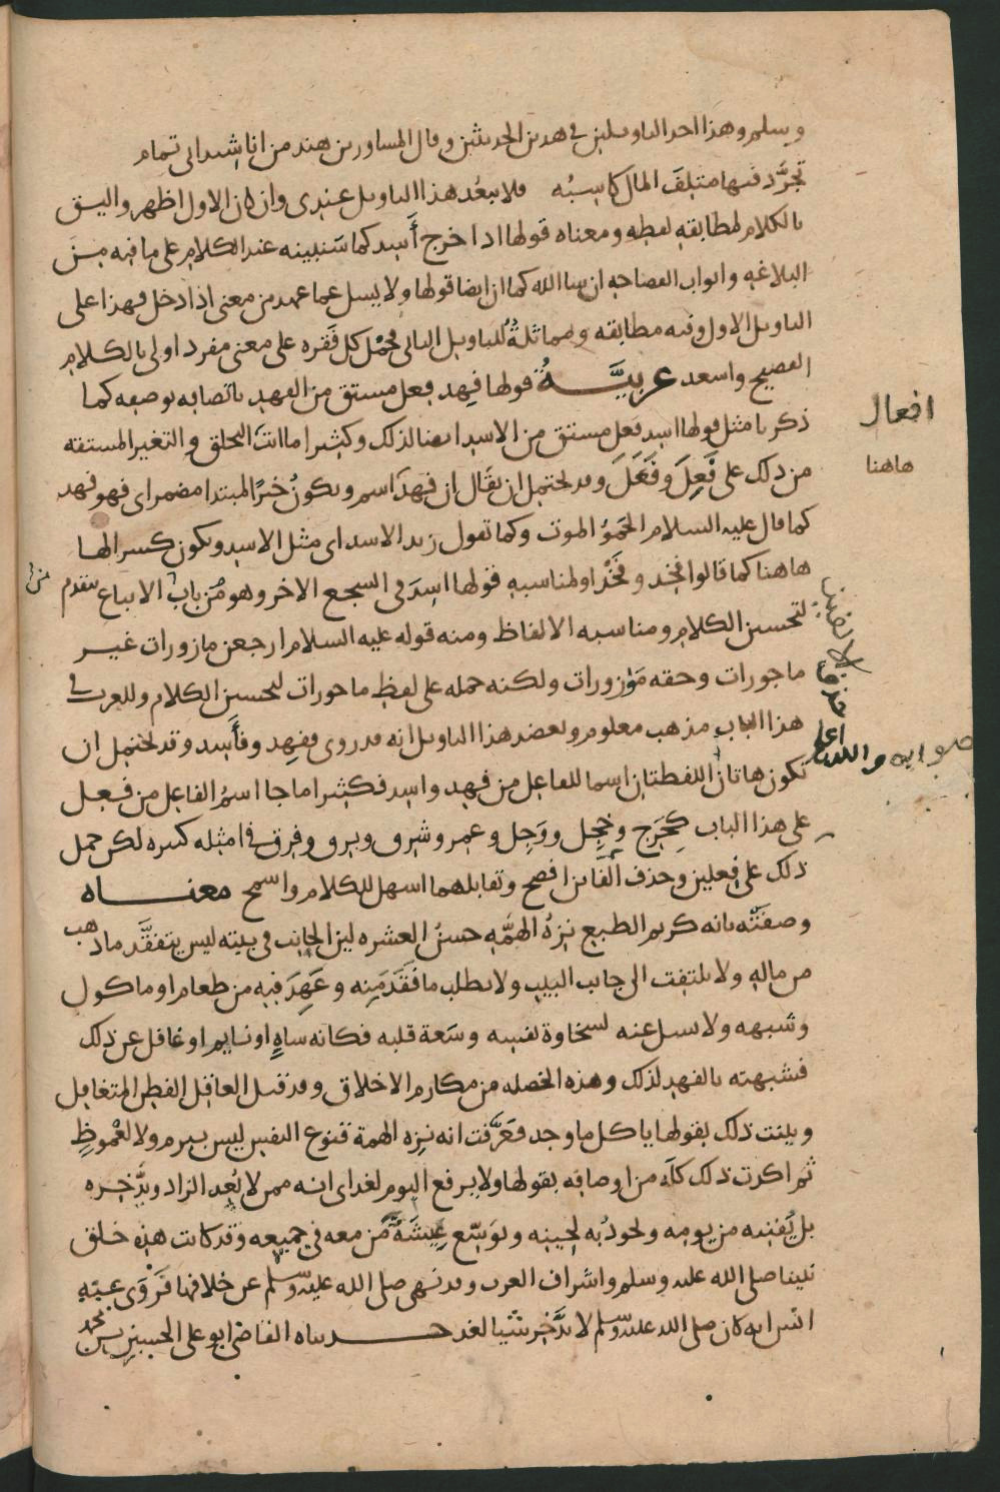 وسلم وهذا احد التاويلين في هذين الحديثين وقال المساور بن هند من اناشيد ابي تمام
تجرّد فيها متلفَ المال كاسبُه فلا يبعُد هذا التاويل عندى وان كان الاول اظهر واليق
بالكلام لمطابقه لفظه ومعناه قولها اذا خرج أَسِد كما سنبينه عند الكلام على ما فيه من
البلاغه وابواب الفصاحه ان شا الله كما ان ايضا قولها ولا يسل عما عهد من معنى اذا دخل فهد اعلى
التاويل الاول وفيه مطابقه ومماثلةُ للتاويل الثانى فحمْل كل فَقره على معنى مفرد اولى بالكلام
الفصيح واسعد عربيَّةُ قولها فهِد فعل مشتق من الفهد باتصافه بوصفه كما
ذكرنا مثل قولها اسِد فعل مشتق من الاسد ايضا لذلك وكثيرا ما اتت الخلق والتغير المشتقه
من ذلك على فَعِلَ وفَعَلَ وقد يحتمل ان يقال ان فهدَ اسم ويكونُ خبرَ المبتدا مضمر اى فهو فهد
كما قال عليه السلام الحَموُ الموت وكما تقول زيد الاسد اى مثل الاسد ويكون كسر الها
هاهنا كما قالوا فخِد وفَخْذ اولمناسبه قولها اسِدَ في السجع الاخر وهو مُن باب الاتباع يتقدم
لتحسين الكلام ومناسبه الالفاظ ومنه قوله عليه السلام ارجعن مازورات غير
ماجورات وحقه مَوْزورات ولكنه حمله على لفظ ماجورات لتحسين الكلام وللعرب في
هذا الباب مذهب معلوم ويعضد هذا التاويل انه قد روى ففهِد وفأَسِد وقد يحتمل ان
تكون هاتان اللفظتان اسما للفاعل من فهد واسد فكثيرا ما جا اسمُ الفاعل من فعل
على هذا الباب كحَرِج وخجِل ووَجِل وعمر وشرق وبرق وفرق في امثله كثيره لكن حمل
ذلك على فعلين وحذف الفَاين افصح وتقابلهما اسهل للكلام واسمح معناه
وصفَتْه بانه كريم الطبع نزِهُ الهمَّه حسنُ العشره لين الجانب في بيته ليس يتفقَّد ما ذهب
من ماله ولا يلتفت الى جانب البيت ولا يطلب ما فَقَدَ مِنه وعَهِدَ فيه من طعام او ماكول
وشبهه ولا يسل عنه لسخاوة نفسه وسَعة قلبه فكانه ساهٍ او نايم او غافل عن ذلك
فشبهته بالفهد لذلك وهذه الخصله من مكارم الاخلاق وقد قيل العاقل الفطن المتغافل
وبينت ذلك بقولها ياكل ما وجد فعَرَّفت انه نزِه الهمة قنوع النفس ليس ببرم ولا لَعْموظٍ
ثم اكدت ذلك كلَّه من اوصافِه بقولها ولا يرفع اليوم لغد اى انه ممن لا يُعِد الزاد ويدَّخِره
بل يُفنيه من يومه ويجود به لحينه ويوسّع عِيشَةَ من معه في جميعه وقد كانت هذه خلق
نبينا صلى الله عليه وسلم واشراف العرب وقد نهى صلى الله عليه وسلم عن خلافها فَرَوَى عنه
انس انه كان صلى الله عليه وسلم لا يدَّخِر شيا لغد حدثناه القاضى ابو على الحسين بن محمد
افعال
هاهنا
صوابه والله اعلم